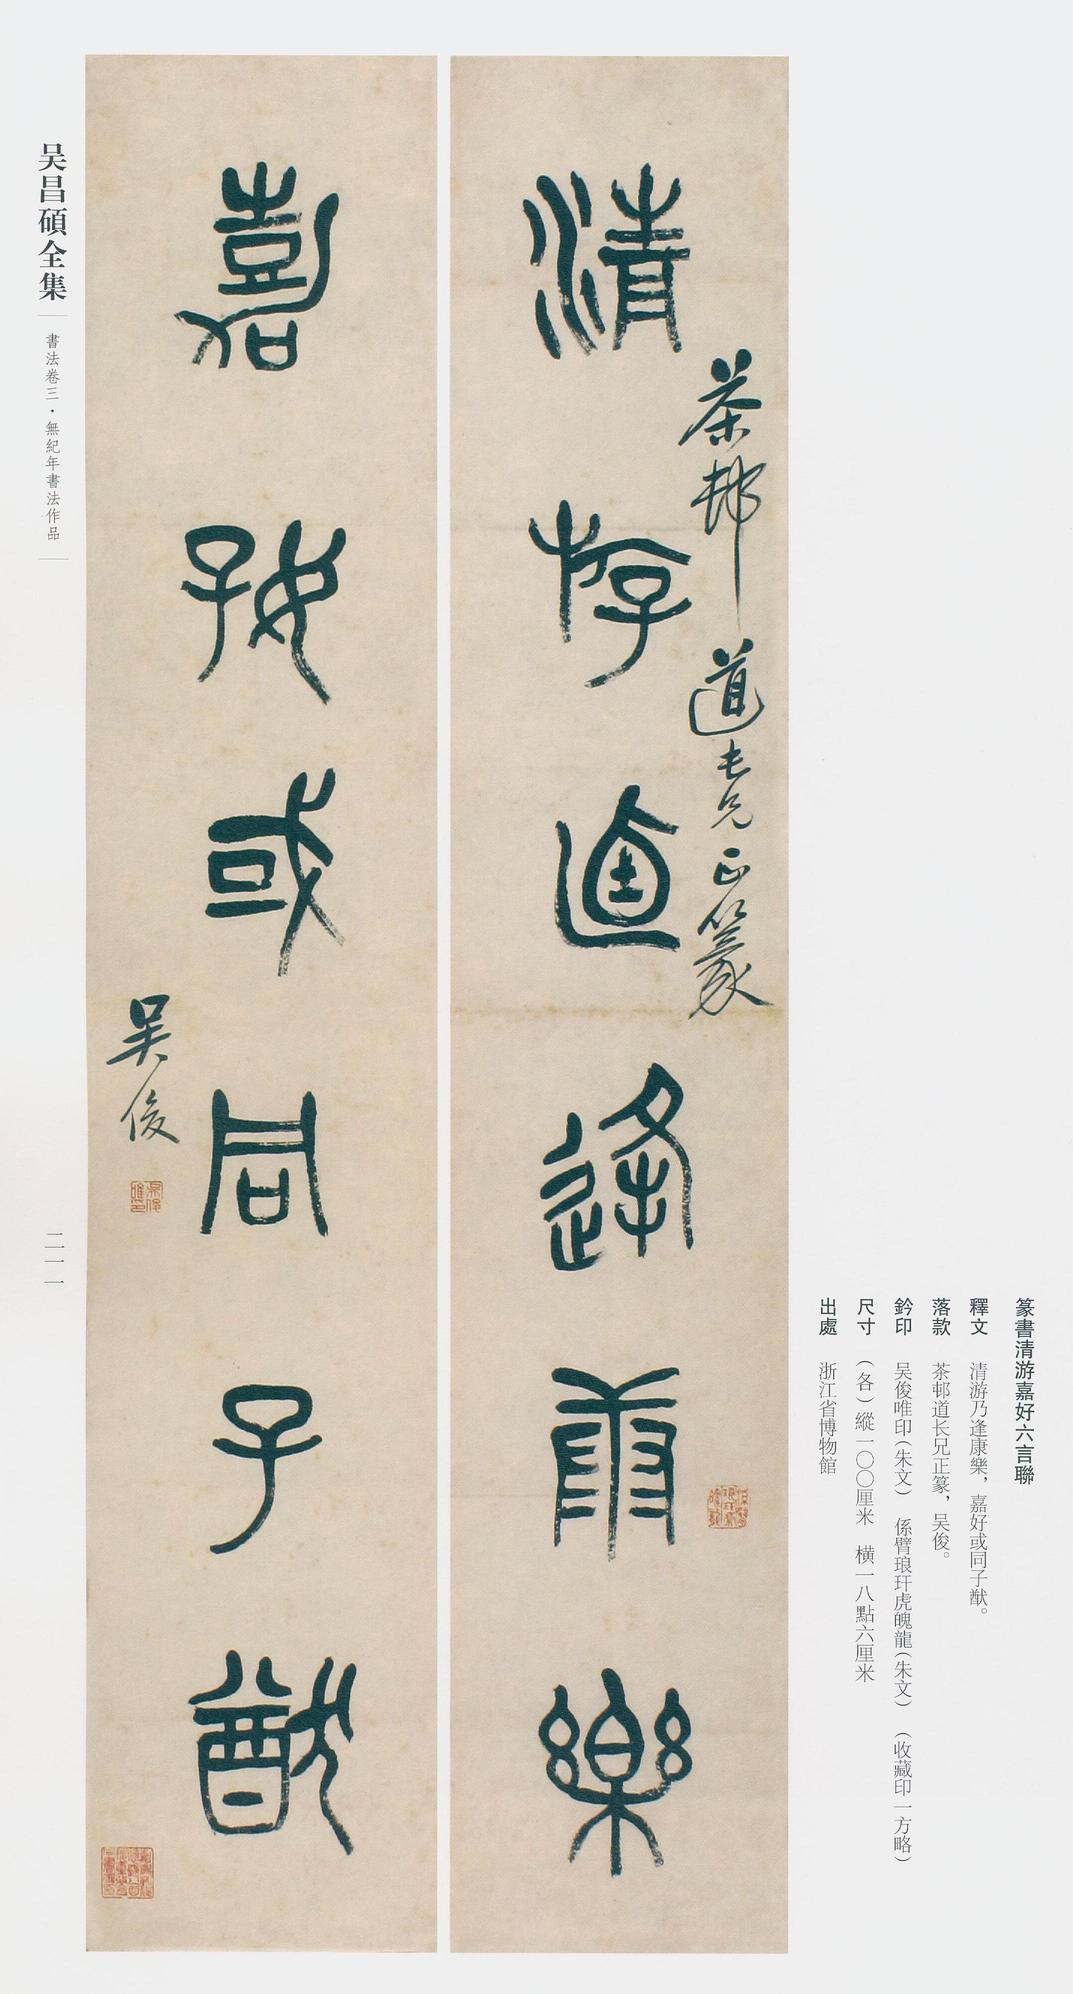 篆書清游嘉好六言聯
釋文　清游乃逢康樂，嘉好或同子猷。
落款　茶邨道长兄正篆，吴俊。
鈐印　吴俊唯印（朱文）　係臂琅玕虎魄龍（朱文）　（收藏印一方略）
尺寸　（各）縱一〇〇厘米　横一八點六厘米
出處　浙江省博物館
茶邨道長兄正篆
清游逌逢康樂
嘉好或同子猷
吴俊
吴昌碩全集
書法卷三・無紀年書法作品
二一一